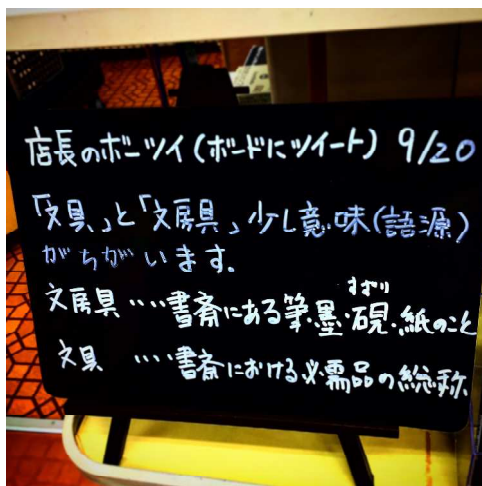 店長のボーツイ(ボードにツイート) 9/20
「文具」と「文房具」少し意味(語源)
がちがいます。
すずり
文房具‥‥書斎にある筆・墨・硯・紙のこと
文具 ‥‥書斎における必需品の総称